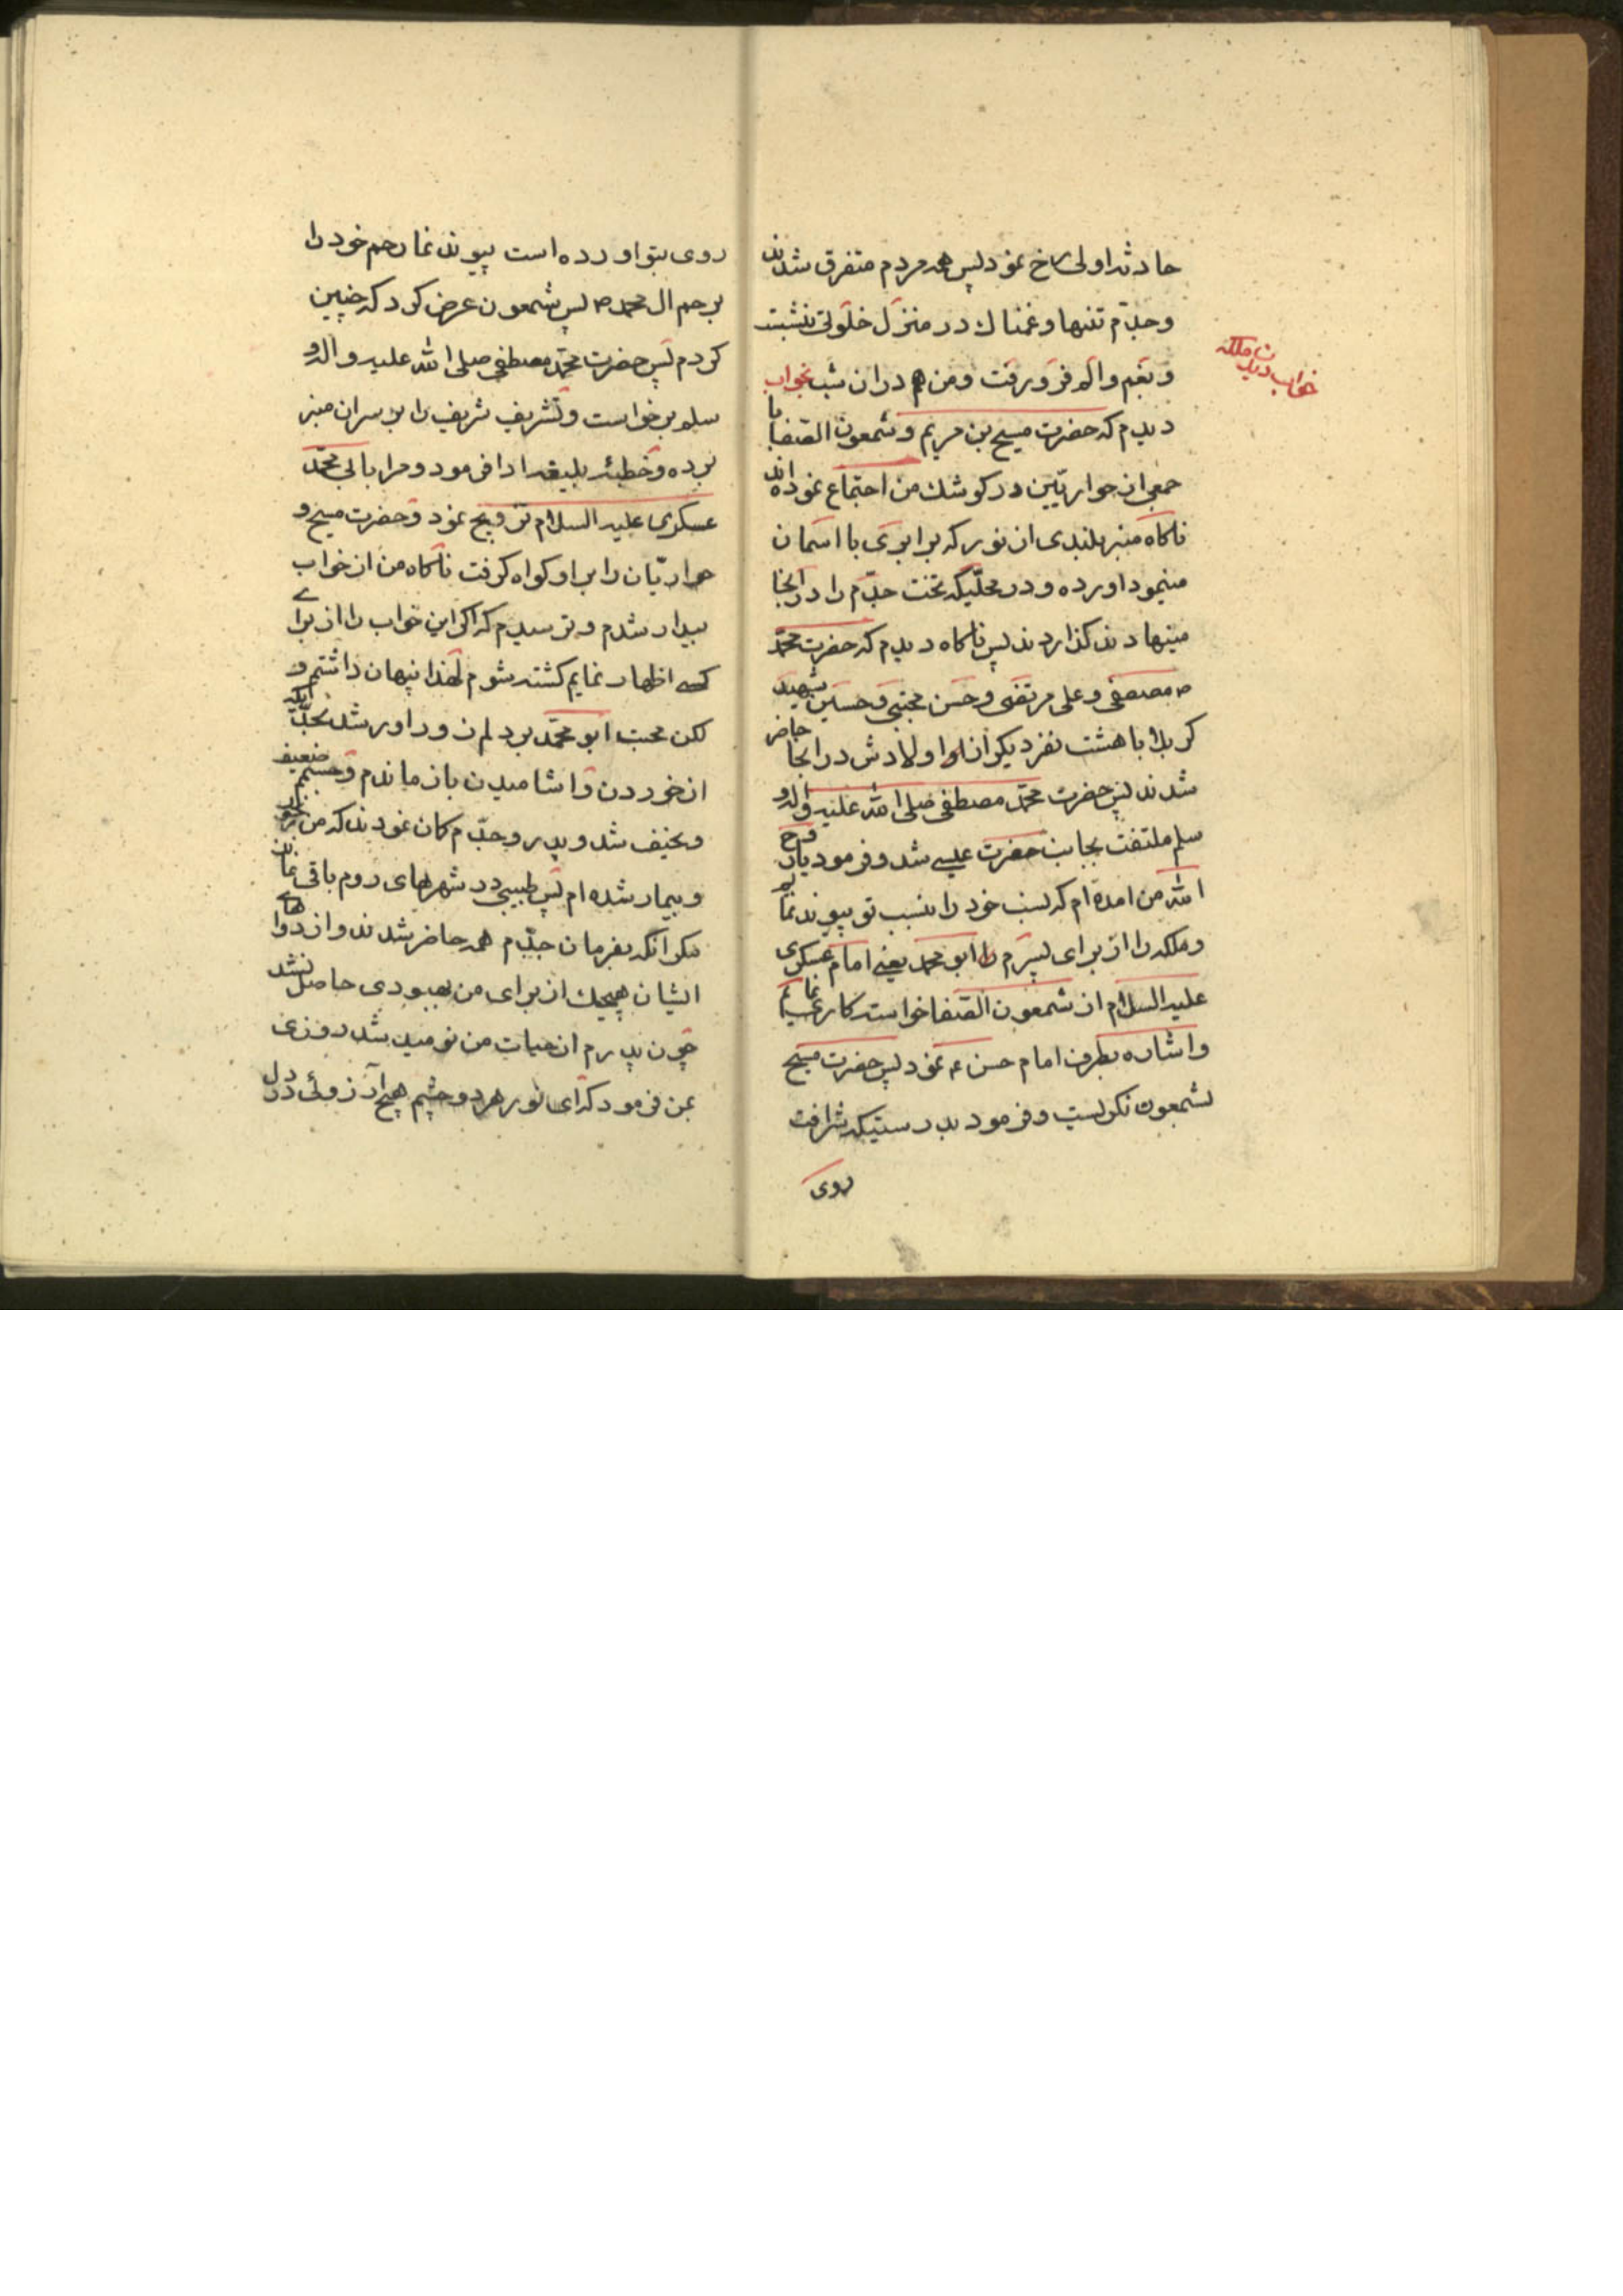 حادثه اولی رخ نمود پس همه مردم متفرق شدند
وجدّم تنها و غمناك در منزل خلوتی بنشست
و بغم و الم فرو رفت و من هم دران شب بخواب
خواب دیدن ملکه
دیدم که حضرت مسیح بن مریم و شمعون الصفا با
جمعی از حواریّین در کوشك من اجتماع نموده اند
ناکاه منبر بلندی از نور که برابری با اسمان
مینمود اورده و در محلّیکه تخت جدّم را در انجا
مینهادند کذاردند پس ناکاه دیدم که حضرت محمّد
ص مصطفی و علی مرتضی و حسن مجتبی و حسین شهید
کربلا با هشت نفر دیکر از اولادش در انجا حاضر
شدند پس حضرت محمّد مصطفی صلی الله علیه و اله و
سلم ملتفت بجانب حضرت عیسی شد و فرمود یا روح
الله من امده ام که نسب خود را بنسب تو پیوند نمایم
و ملکه را از برای پسرم ابو محمد یعنے امام عسکری
علیه السلام از شمعون الصفا خواستکاری نمایم
و اشاره بطرف امام حسن ع نمود پس حضرت مسیح
بشمعون نکریست و فرمود بدرستیکه شرافت
روی
روی بتو اورده است پیوند نما رحم خود را
برحم ال محمد ص پس شمعون عرض کرد که چنین
کردم پس حضرت محمّد مصطفی صلی الله علیه و اله و
سلم برخواست و تشریف شریف را بر سر ان منبر
برده و خطبهٔ بلیغه ادا فرمود و مرا بابی محمّد
عسکری علیه السلام تزویج نمود و حضرت مسیح و
حواریّان را بر او کواه کرفت ناکاه من از خواب
بیدار شدم و ترسیدم که اکر این خواب را از برای
کسے اظهار نمایم کشته شوم لهذا پنهان داشتم و
لکن محبت ابو محمّد بر دلم زور اور شد بحدّی انکه
از خوردن و اشامیدن باز ماندم و جسمم ضعیف
و نحیف شد و پدر و جدّم کمان نمودند که من
و بیمار شده ام پس طبیبی در شهرهای روم باقی نماند
مکر انکه بفرمان جدّم همه حاضر شدند و از دواهاے
ایشان هیچیك از برای من بهبودی حاصل نشد
چون پدرم از حیات من نومید شد روزی
بمن فرمود که ای نور هر دو چشم هیچ آرزوئی در دل